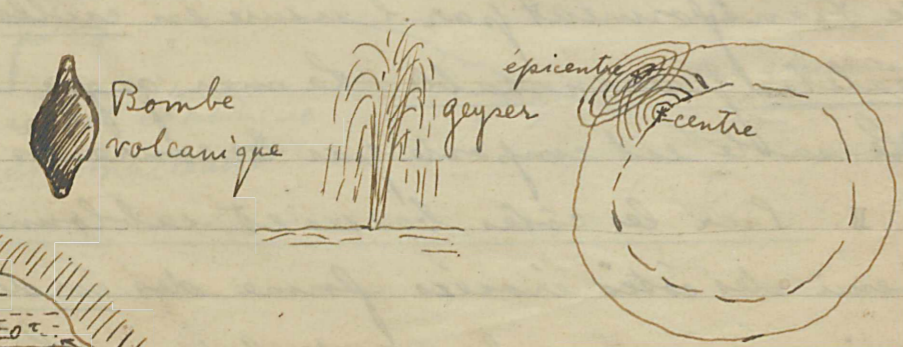 Bombe
volcanique
geyser
épicentre
centre